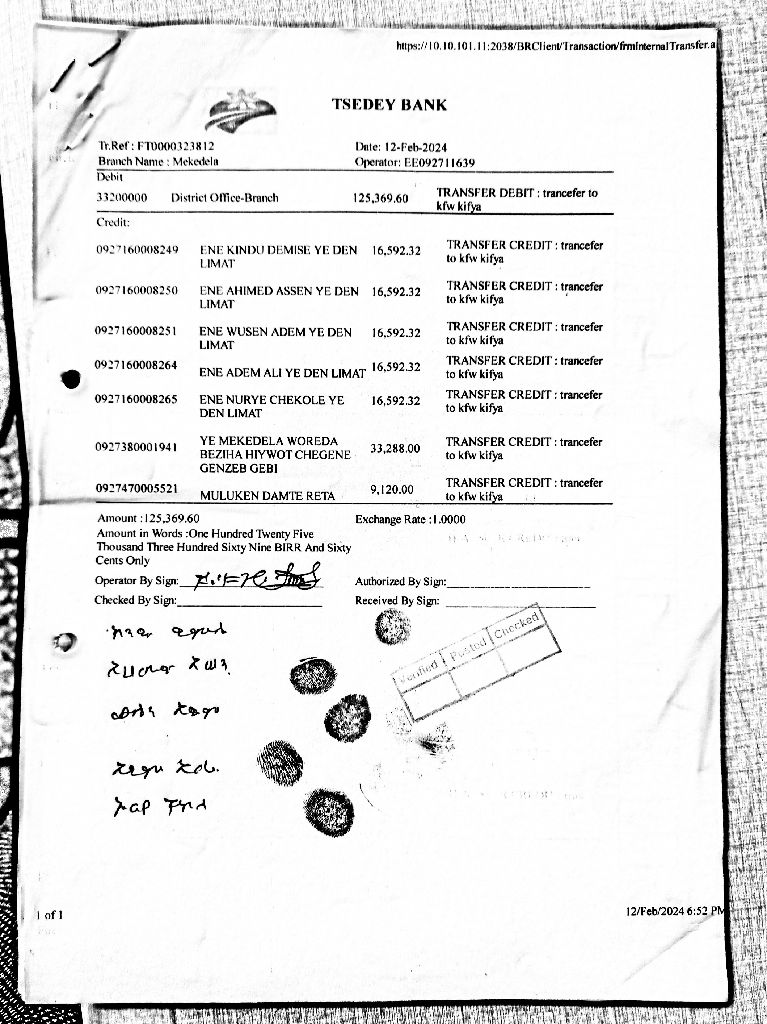 https://10.10.101.11:2038/BRClient/Transaction/frmInternalTransfer.a
TSEDEY BANK
Tr.Ref : FT0000323812 Date: 12-Feb-2024
Branch Name : Mekedela Operator: EE092711639
Debit
33200000 District Office-Branch 125,369.60 TRANSFER DEBIT : trancefer to
kfw kifya
Credit:
0927160008249 ENE KINDU DEMISE YE DEN LIMAT 16,592.32 TRANSFER CREDIT : trancefer to kfw kifya
0927160008250 ENE AHIMED ASSEN YE DEN LIMAT 16,592.32 TRANSFER CREDIT : trancefer to kfw kifya
0927160008251 ENE WUSEN ADEM YE DEN LIMAT 16,592.32 TRANSFER CREDIT : trancefer to kfw kifya
0927160008264 ENE ADEM ALI YE DEN LIMAT 16,592.32 TRANSFER CREDIT : trancefer to kfw kifya
0927160008265 ENE NURYE CHEKOLE YE DEN LIMAT 16,592.32 TRANSFER CREDIT : trancefer to kfw kifya
0927380001941 YE MEKEDELA WOREDA BEZIHA HIYWOT CHEGENE GENZEB GEBI 33,288.00 TRANSFER CREDIT : trancefer to kfw kifya
0927470005521 MULUKEN DAMTE RETA 9,120.00 TRANSFER CREDIT : trancefer to kfw kifya
Amount :125,369.60 Exchange Rate :1.0000
Amount in Words :One Hundred Twenty Five
Thousand Three Hundred Sixty Nine BIRR And Sixty
Cents Only
Operator By Sign: Authorized By Sign:
Checked By Sign: Received By Sign:
Verified Posted Checked
1 of 1 12/Feb/2024 6:52 PM